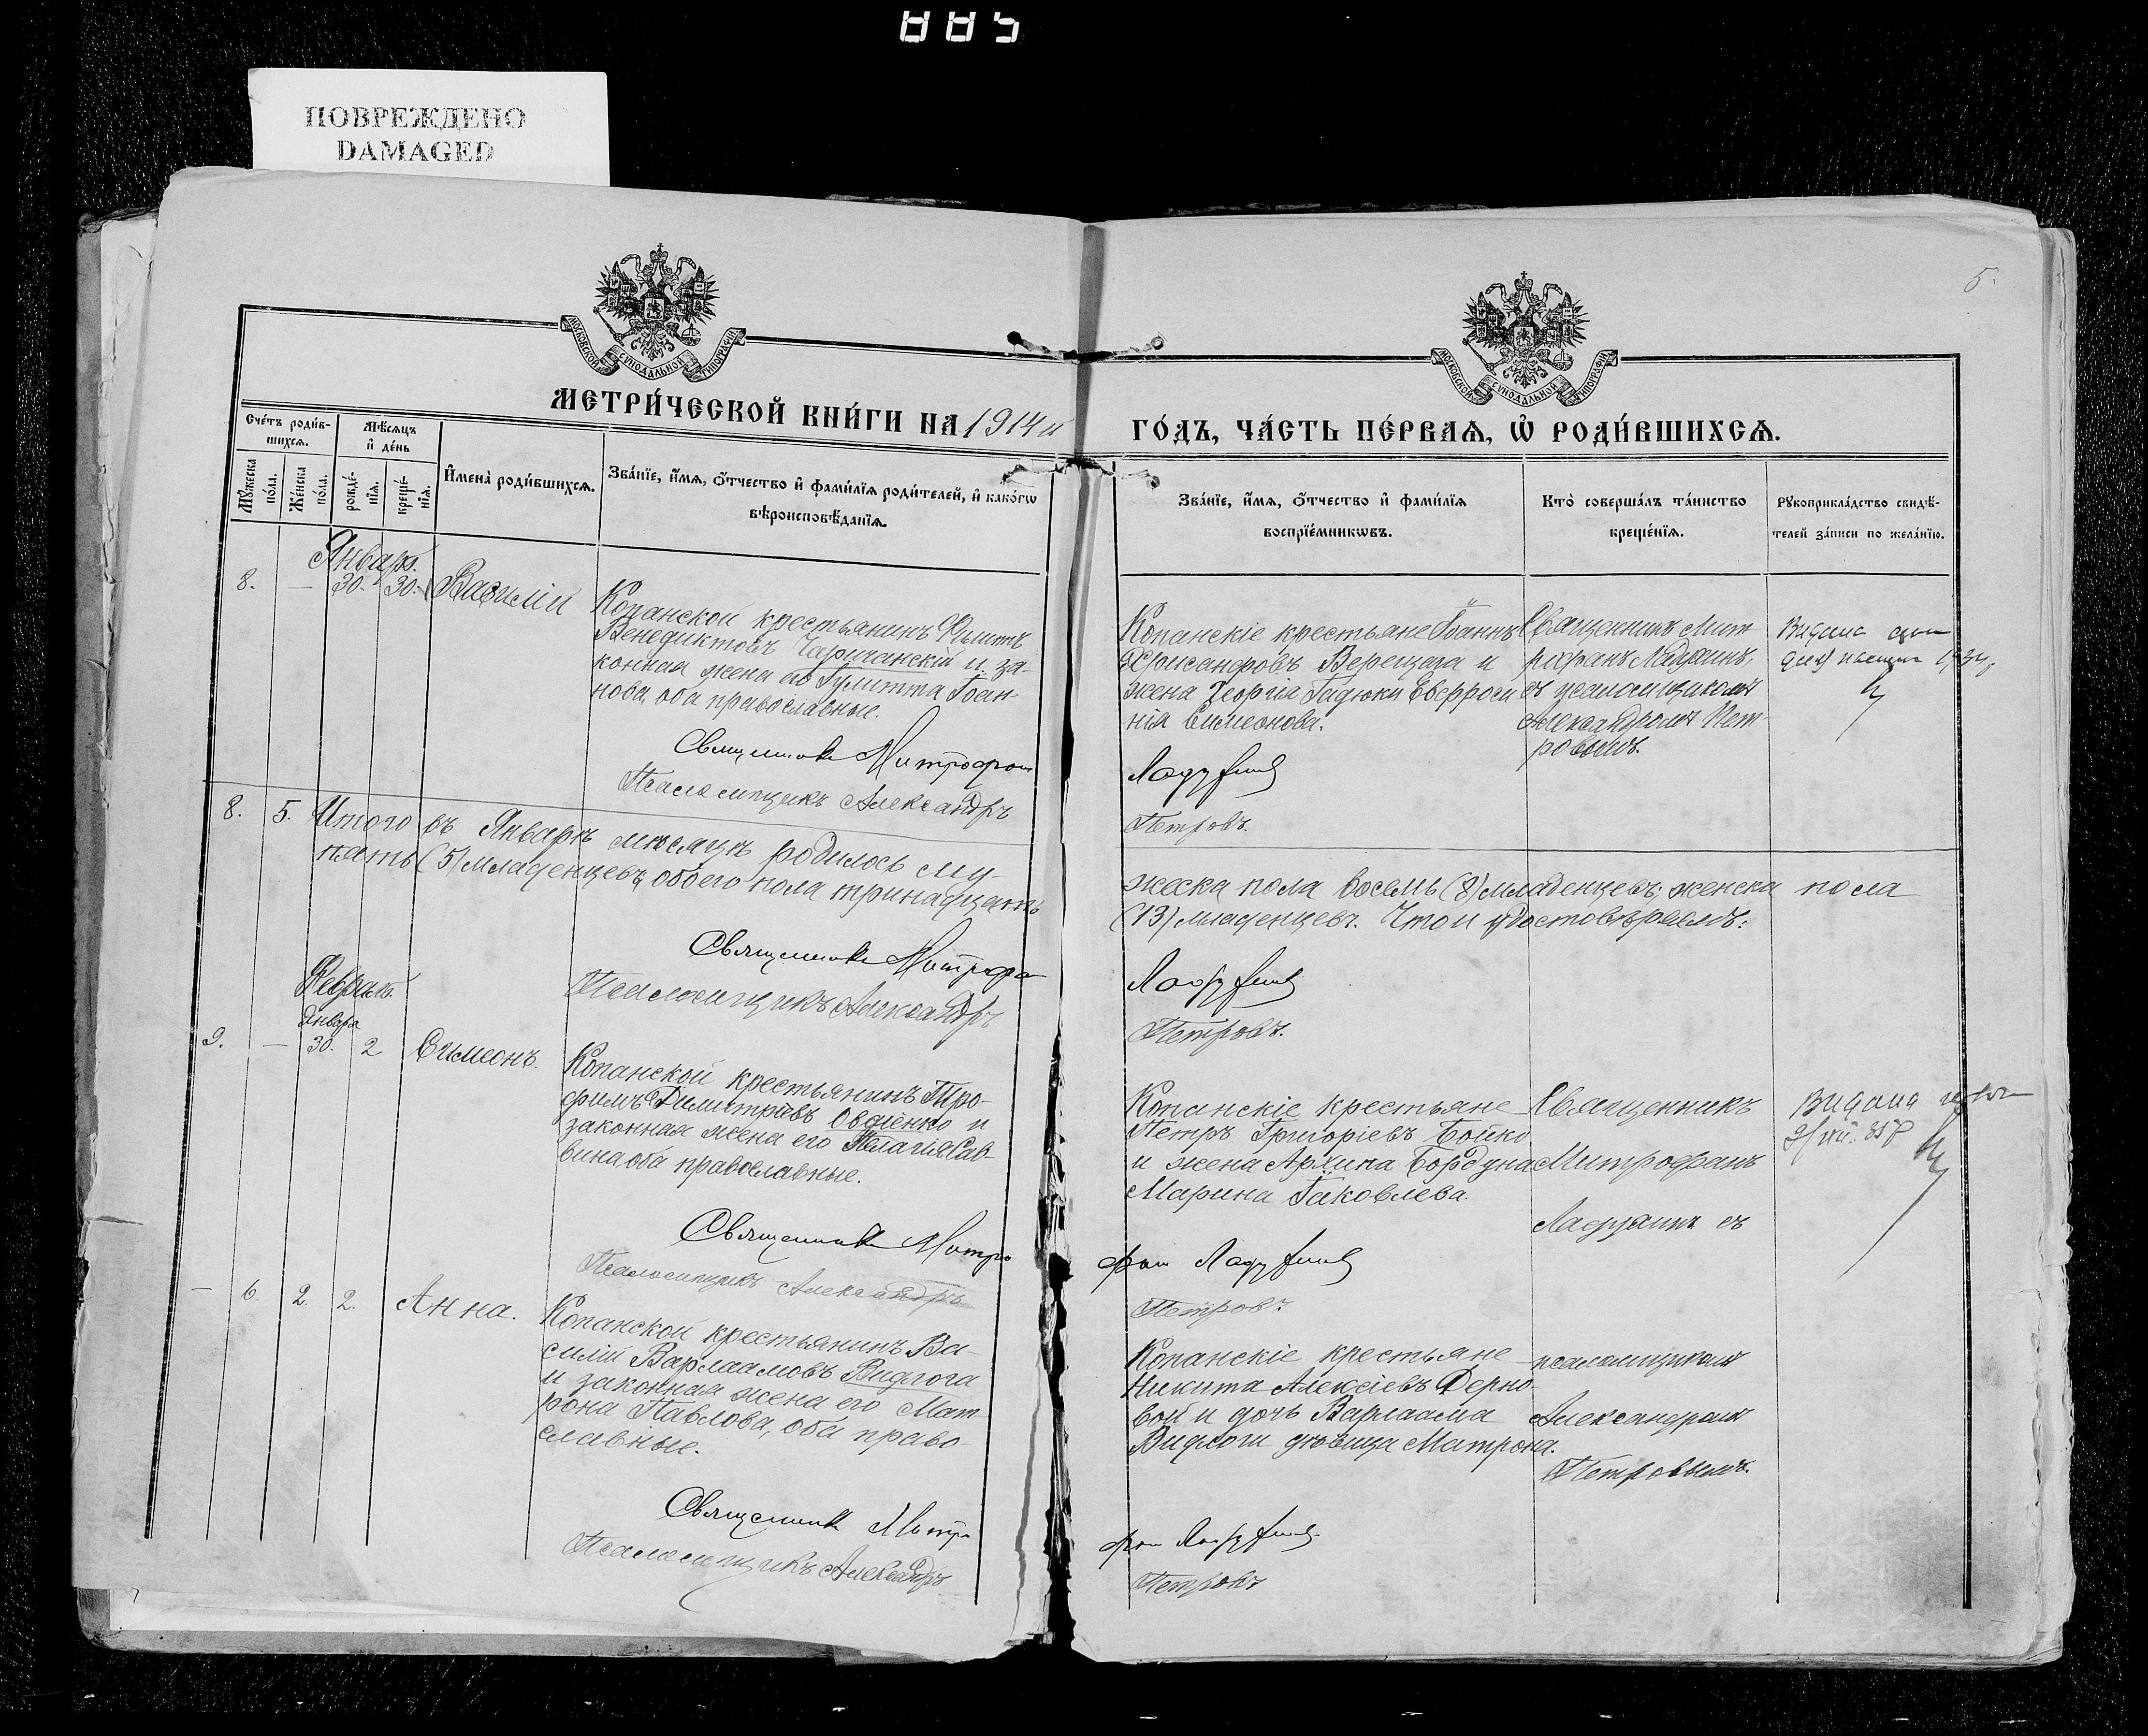 885
ПОВРЕЖДЕНО
DAMAGED
5.
МОСКОВСКОЙ СУНОДАЛЬНОЙ ТИПОГРАФІИ
МОСКОВСКОЙ СУНОДАЛЬНОЙ ТИПОГРАФІИ
МЕТРИ́ЧЕСКОЙ КНИ́ГИ НА 1914й
ГО́ДЪ, ЧА́СТЬ ПЕ́РВАѦ, Ѡ РОДИ́ВШИХСѦ.
Сче́тъ роди́в-
шихсѧ.
Мѣ́сѧцъ
и де́нь
Мꙋжеска
по́ла.
Же́нска
по́ла.
рожде́-
нїѧ.
креще́-
нїѧ.
Имена̀ роди́вшихсѧ.
Зва́нїе, и́мѧ, о́тчество и фами́лїѧ роди́телей, и како́гѡ
вѣроисповѣ́данїѧ.
Зва́нїе, и́мѧ, о́тчество и фами́лїѧ
воспрїе́мникѡвъ.
Кто̀ соверша́лъ та́инство
креще́нїѧ.
Рꙋкоприкла́дство свидѣ́-
телей за́писи по жела́нїю.
Январь.
8. — 30. 30. Василій
Копанской крестьянинъ
Венедиктовъ Чаричанскій и за-
конная жена его Іулитта Іоан-
нова, оба православные.
Священникъ Митрофан
Псаломщикъ Александръ
Копанскіе крестьяне Іоаннъ
Верещага и
жена Георгія Гадюки Евфроси
нія Симеонова.
Ладухинъ
Петровъ.
Священникъ Мит
рофанъ Ладухинъ,
съ псаломщикомъ
Александромъ Пет-
ровымъ.
Видана
8. 5. Итого въ Январѣ мѣсяцѣ родилось му-
жеска пола восемь (8) младенцевъ; женска пола
пять (5) младенцевъ, обоего пола тринадцать
(13) младенцевъ. Что и удостовѣряемъ:
Священникъ Митрофан
Псаломщикъ Александръ
Ладухинъ
Петровъ.
Февраль.
Января
9. — 30. 2 Симеонъ.
Копанской крестьянинъ Тро-
фимъ Димитріевъ Овсіенко и
законная жена его Пелагія Сав-
вина, оба православные.
Священникъ Митро
Псаломщикъ Александръ
Копанскіе крестьяне
Петръ Григоріевъ Бойко
и жена Архипа Бордуна
Марина Іаковлева.
фан Ладухинъ
Петровъ
Священникъ
Митрофанъ
Ладухинъ съ
Видана
— 6. 2. 2. Анна.
Копанской крестьянинъ Ва-
силій Варлаамовъ Видлога
и законная жена его Мат
рона Павлова, оба право-
славные.
Священникъ Митро
Псаломщикъ Александръ
Копанскіе крестьяне
Никита Алексіевъ Дерно-
вой и дочь Варлаама
Видлоги дѣвица Матрона.
фан Ладухинъ
Петровъ
псаломщикомъ
Александромъ
Петровымъ.